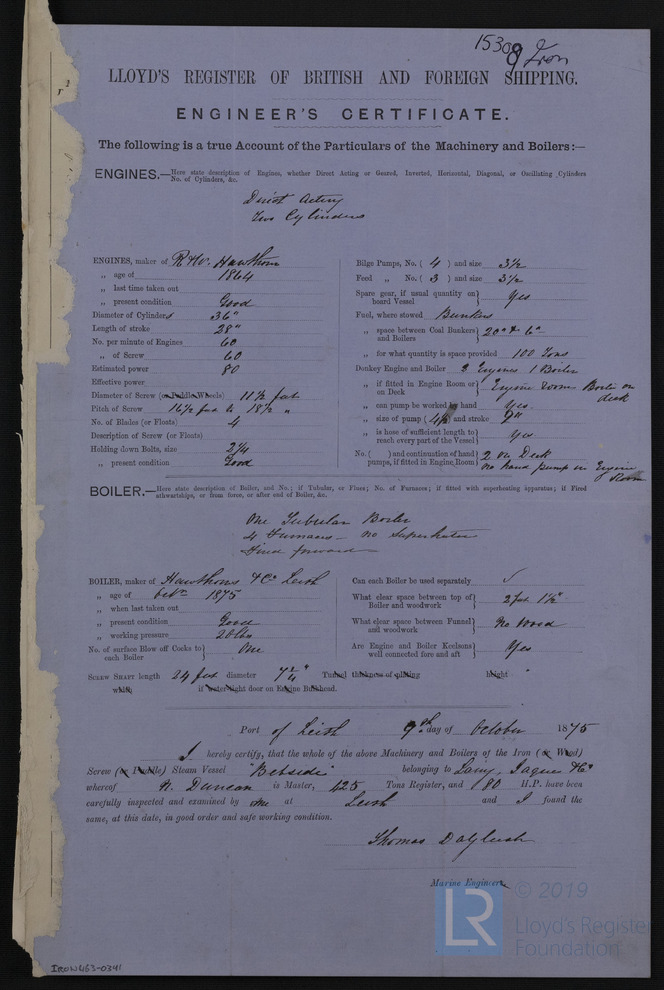 15308 Iron
LLOYD'S REGISTER OF BRITISH AND FOREIGN SHIPPING.
ENGINEER'S CERTIFICATE.
The following is a true Account of the Particulars of the Machinery and Boilers:—
ENGINES.—Here state description of Engines, whether Direct Acting or Geared, Inverted, Horizontal, Diagonal, or Oscillating Cylinders
No. of Cylinders, &c.
Direct Acting
Two Cylinders
ENGINES, maker of R & W. Hawthorn
„ age of 1864
„ last time taken out
„ present condition Good
Diameter of Cylinders 36"
Length of stroke 28"
No. per minute of Engines 60
„ of Screw 60
Estimated power 80
Effective power
Diameter of Screw (or Paddle Wheels) 11½ feet
Pitch of Screw 16½ feet to 18½ „
No. of Blades (or Floats) 4
Description of Screw (or Floats)
Holding down Bolts, size 2¼
„ present condition Good
Bilge Pumps, No. ( 4 ) and size 3½
Feed „ No. ( 3 ) and size 3½
Spare gear, if usual quantity on
board Vessel Yes
Fuel, where stowed Bunkers
„ space between Coal Bunkers
and Boilers 20" & 6"
„ for what quantity is space provided 100 Tons
Donkey Engine and Boiler 2 Engines 1 Boiler
„ if fitted in Engine Room or
on Deck Engine Room Boiler on deck
„ can pump be worked by hand Yes
„ size of pump ( 4½ ) and stroke 9"
„ is hose of sufficient length to
reach every part of the Vessel Yes
No. ( ) and continuation of hand
pumps, if fitted in Engine Room 2 on Deck
no hand pump in Engine Room
BOILER.—Here state description of Boiler, and No.; if Tubular, or Flues; No. of Furnaces; if fitted with superheating apparatus; if Fired
athwartships, or from force, or after end of Boiler, &c.
One Tubular Boiler
4 Furnaces — no Superheater
Fired forward
BOILER, maker of Hawthorns & Co Leith
„ age of 1875
„ when last taken out
„ present condition Good
„ working pressure 20 lbs
No. of surface Blow off Cocks to
each Boiler One
Can each Boiler be used separately ✓
What clear space between top of
Boiler and woodwork 2 feet 1½"
What clear space between Funnel
and woodwork No Wood
Are Engine and Boiler Keelsons
well connected fore and aft Yes
SCREW SHAFT length 24 feet diameter 7¾" Tunnel thickness of plating height "
width if water-tight door on Engine Bulkhead.
Port of Leith 9th day of October 1875
I hereby certify, that the whole of the above Machinery and Boilers of the Iron (or Wood)
Screw (or Paddle) Steam Vessel "Bebside" belonging to Laing, &Co
whereof N. Duncan is Master, 425 Tons Register, and 80 H.P. have been
carefully inspected and examined by me at Leith and I found the
same, at this date, in good order and safe working condition.
Thomas Dalgleish
Marine Engineer.
© 2019
LR
Lloyd's Register
Foundation
IRON463-0341